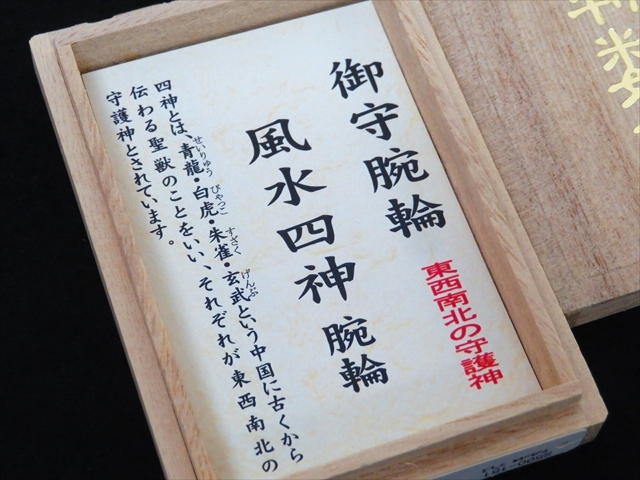 御守腕輪
東西南北の守護神
風水四神腕輪
四神とは、青龍・白虎・朱雀・玄武という中国に古くから
せいりゅう びゃっこ すざく げんぶ
伝わる聖獣のことをいい、それぞれが東西南北の
守護神とされています。